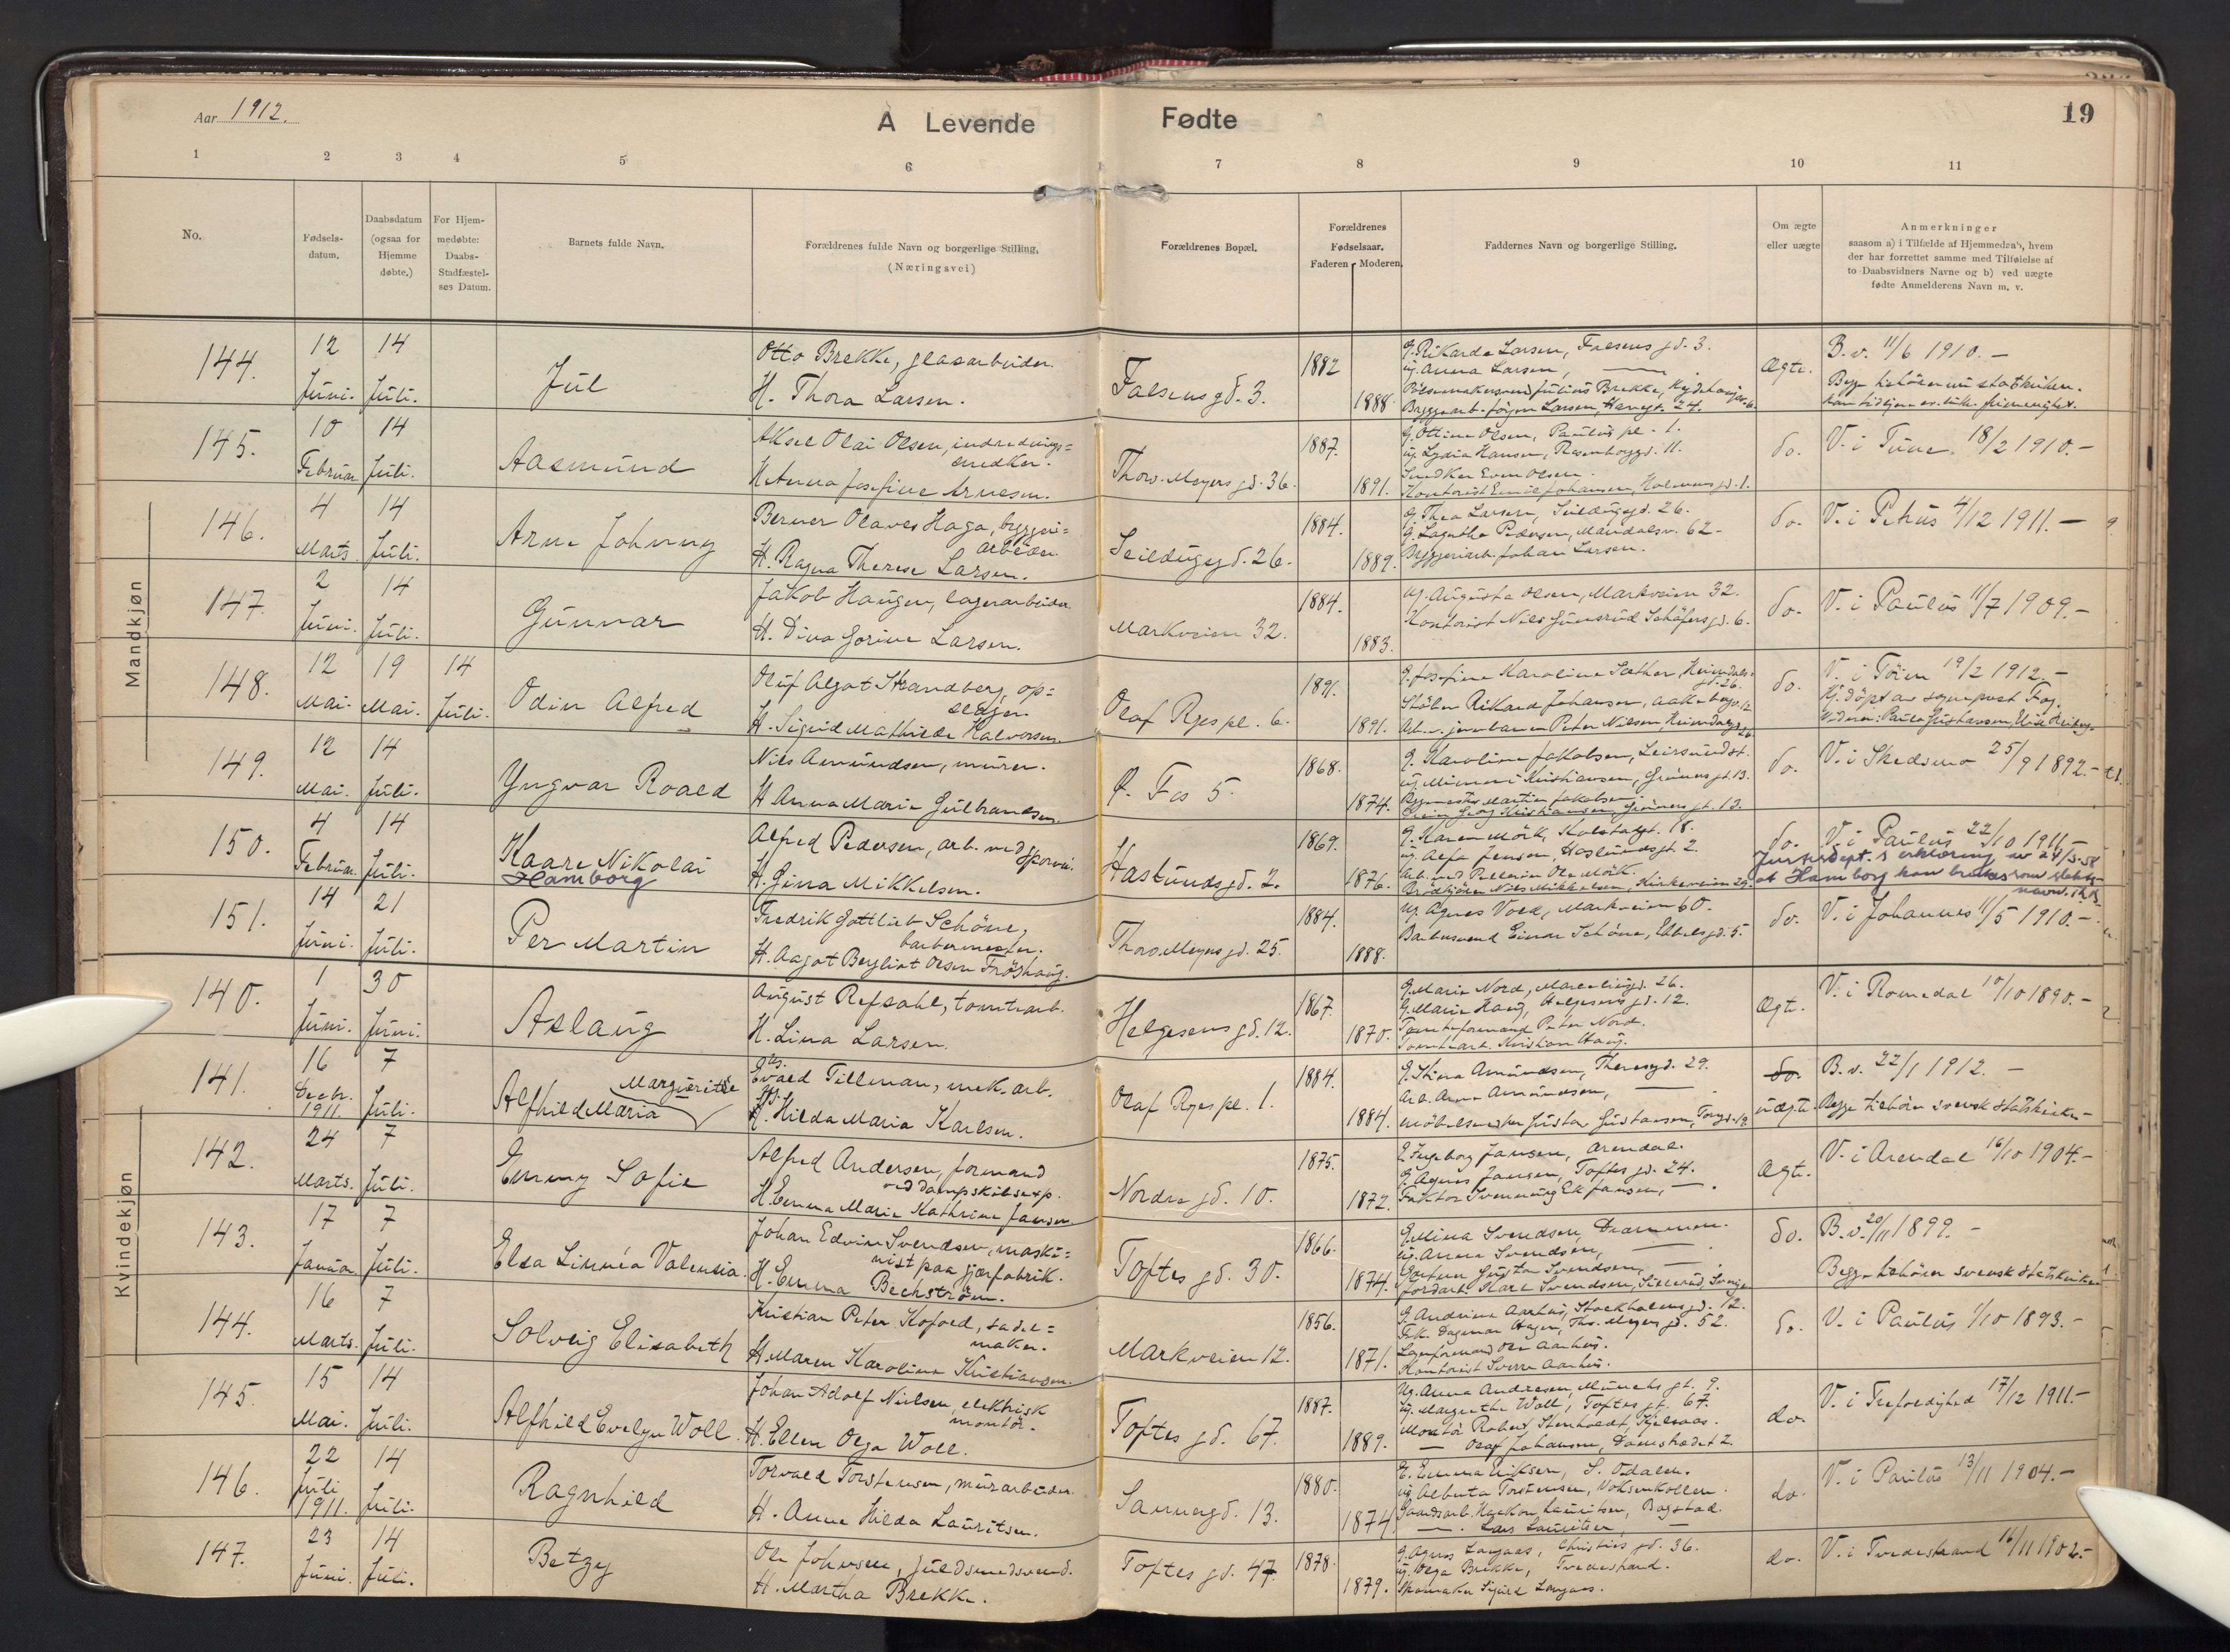 Aar 1912.
A Levende Fødte
19
1 2 3 4 5 6 7 8 9 10 11
No.
Fødsels-
datum.
Daabsdatum
(ogsaa for
Hjemme
døbte.)
For Hjem-
medøbte:
Daabs-
Stadfæstel-
ses Datum.
Barnets fulde Navn.
Forældrenes fulde Navn og borgerlige Stilling.
(Næringsvei)
Forældrenes Bopæl.
Forældrenes
Fødselsaar.
Faderen Moderen.
Faddernes Navn og borgerlige Stilling.
Om ægte
eller uægte
Anmerkninger
saasom a) i Tilfælde af Hjemmedaab, hvem
der har forrettet samme med Tilføielse af
to Daabsvidners Navne og b) ved uægte
fødte Anmelderens Navn m. v.
Mandkjøn
144.
12 Juni.
14 Juli.
Jul
Otto Brekke, glasarbeider.
H. Thora Larsen.
Falsensgd. 3.
1882
1888.
G. Rikarda Larsen, Falsens gd. 3.
Ug. Anna Larsen,
Brekke,
Bryggearb. Jørgen Larsen, Havegt. 24.
Ægte.
B.v. 11/6 1910.-
145.
10 Februar
14 Juli.
Aasmund
Aksel Olai Olsen, indrednings=
snedker.
H. Anna Josefine Arnesen.
Thorv. Meyers gd. 36.
1887.
1891.
G. Ottine Olsen, Paulus pl. 1.
ug. Lydia Hansen, Rosenborggd. 11.
Snedker Even Olsen.
Kontorist Emil Johansen,
do.
V. i Tune. 18/2 1910.-
146.
4 Marts.
14 Juli.
Arne Johnny
Berner Olaves Haga, bryggeri=
arbeider.
H. Ragna Therese Larsen.
Seildugsgd. 26.
1884.
1889.
G. Thea Larsen, Seildugsgd. 26.
G. Lagertha Pedersen, Maridalsv. 62.
Bryggeriarb. Johan Larsen.
do.
V. i Petrus 4/12 1911.-
147.
2 Juni.
14 Juli.
Gunnar
Jakob Haugen, lagerarbeider.
H. Dina Gorine Larsen.
Markveien 32.
1884.
1883.
Ug. Augusta Olsen, Markveien 32.
Kontorist Nils Gunsrud Schäfersgd. 6.
do.
V. i Paulus 11/7 1909.-
148.
12 Mai.
19 Mai.
14 Juli.
Odin Alfred
Oluf Algot Strandberg, op=
H. Sigrid Mathilde Halvorsen.
Olaf Ryes pl. 6.
1891.
1891.
G. Josefine Karoline Sæther, Heimdals=
gd. 26.
Støber Rikard Johansen,
Arb. v. jernbanen Peter Nilsen, Heimdalsgd. 26
do.
V. i Tøien 19/2 1912.-
149.
12 Mai.
14 Juli.
Yngvar Roald
Nils Amundsen, murer.
H. Anna Marie Gulbrandsen.
Ø. Fos 5.
1868.
1874.
G. Karoline Jakobsen, Leirsundst.
ug. Minni Kristiansen, Grünersgt. 13.
Martin Jakobsen.
Georg Kristiansen Grünersgt. 13.
do.
V. i Skedsmo 25/9 1892.-
150.
4 Februar.
14 Juli.
Kaare Nikolai
Hamborg
Alfred Pedersen, arb. ved sporvei.
H. Gina Mikkelsen.
Haslundsgd. 2.
1869.
1876.
G. Karen Mörk, Kolstadgt. 18.
ug. Alfa Jensen, Haslundsgt. 2.
Arb. ved Ole Mörk.
Brødkjører Nils Mikkelsen, Kirkeveien 29.
do.
V. i Paulus 22/10 1911.-
Justisdept.s erklæring av 24/3-58
at Hamborg kan brukes som slekts-
navn.
151.
14 Juni.
21 Juli.
Per Martin
Fredrik Gottlieb Schöne,
barbermester.
H. Aagot Bergliot Olsen Frøshaug.
Thorv. Meyers gd. 25.
1884.
1888.
Ug. Agnes Vold, Markveien 60.
Barbersvend Einar Schöne, Ebbelsgd. 5.
do.
V. i Johannes 11/5 1910.-
Kvindekjøn
140.
1 Juni.
30 Juni.
Aslaug
August Refsahl, tomtearb.
H. Lina Larsen.
Helgesens gd. 12.
1867.
1870.
G. Marie Nord, 26.
G. Marie Haug, Helgesens gd. 12.
Tomteformand Peter Nord.
Tomtearb. Kristian Haug.
Ægte.
V. i Romedal 10/10 1890.-
141.
16 Decbr. 1911.
7 Juli.
Alfhild Maria Marguerite
Evald Tillman, mek. arb.
H. Hilda Maria Karlsen.
Olaf Ryes pl. 1.
1884.
1884.
G. Stina Amundsen, Theresgd. 29.
Arb. Arne Amundsen,
Møbelsnedker Gustav Gustavsen,
do.
uægte.
B.v. 22/1 1912.-
Begge tilhører svensk statskirke-
142.
24 Marts.
7 Juli.
Emmy Sofie
Alfred Andersen, formand
ved dampskibsexp.
H. Emma Marie Kathrine Jansen.
Nordregd. 10.
1875.
1872.
E. Ingeborg Jansen, Arendal.
G. Agnes Jansen, Toftes gd. 24.
Faktor Svennung Ek Jansen,
Ægt.
V. i Arendal 16/10 1904.-
143.
17 Januar
7 Juli.
Elsa Linnéa Valensia.
Johan Edvin Svendsen, maski=
nist paa gjærfabrik.
H. Emma Bechström.
Toftes gd. 30.
1866.
1874.
E. Mina Svendsen, Drammen.
ug. Anna Svendsen,
Gustav Svendsen,
Jordarb. Karl Svendsen, Sillerud, Sverige
do.
B.v. 20/11 1899.-
Begge tilhører svensk statskirke
144.
16 Marts.
7 Juli.
Solveig Elisabeth
Kristian Peter Kofoed, sadel=
maker.
H. Maren Karoline Kristiansen.
Markveien 12.
1856.
1871.
G. Andrine Aarhus, Stockholmsgd. 12.
Frk. Dagmar Hagen, Thv. Meyers gd. 52.
Lagerformand Ole Aarhus.
Kontorist Sverre Aarhus.
do.
V. i Paulus 1/10 1893.-
145.
15 Mai.
14 Juli.
Alfhild Evelyn Woll.
Johan Adolf Nielsen, elektrisk
montør.
H. Ellen Olga Woll.
Toftes gd. 67.
1887.
1889.
Ug. Anna Andresen, Munchs gt. 9.
Ug. Margrethe Woll, Toftes gt. 67.
Montør Robert Stenholdt, Kjelsaas.
Olaf Johansen, Damstrædet 2.
do.
V. i Trefoldighed 17/12 1911.-
146.
22 Juli 1911.
14 Juli.
Ragnhild
Torvald Torstensen, murarbeider.
H. Anna Hilda Lauritsen.
Sannergd. 13.
1880.
1874.
E. Emma Eriksen, S. Odalen.
ug. Alberta Torstensen, Voksenkollen.
Gaardsarb. Haakon Lauritsen, Bogstad.
Lars Lauritsen,
do.
V. i Paulus 13/11 1904.-
147.
23 Juni.
14 Juli.
Betzy
Ole Johnsen, guldsmedsvend.
H. Martha Brekke.
Toftes gd. 47.
1878.
1879.
G. Agnes Langaas, Christies gd. 36.
ug. Olga Brekke, Tvedestrand.
Skomaker Sigurd Langaas.
do.
V. i Tvedestrand 16/11 1902.-